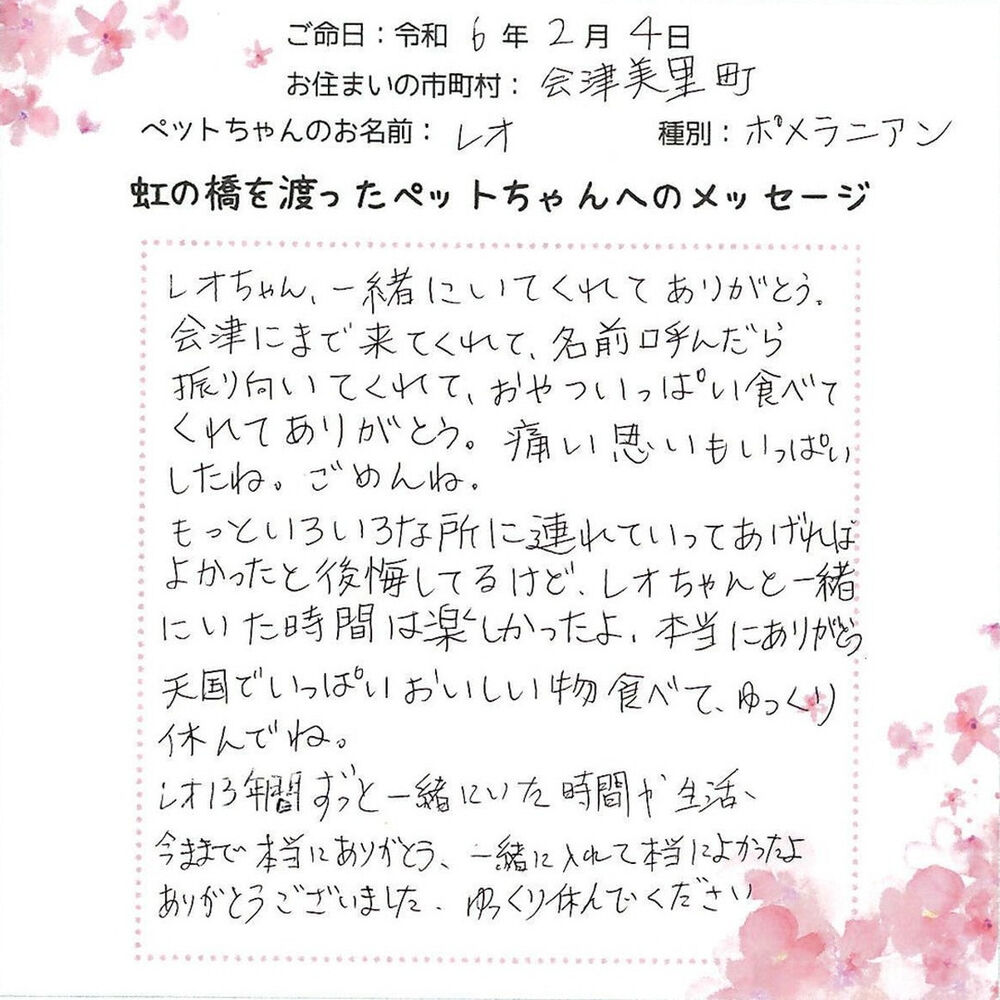 ご命日：令和 6 年 2 月 4 日
お住まいの市町村：会津美里町
ペットちゃんのお名前：レオ 種別：ポメラニアン
虹の橋を渡ったペットちゃんへのメッセージ
レオちゃん、一緒にいてくれてありがとう。
会津にまで来てくれて、名前呼んだら
振り向いてくれて、おやついっぱい食べて
くれてありがとう。痛い思いもいっぱい
したね。ごめんね。
もっといろいろな所に連れていってあげれば
よかったと後悔してるけど、レオちゃんと一緒
にいた時間は楽しかったよ、本当にありがとう
天国でいっぱいおいしい物食べて、ゆっくり
休んでね。
レオ13年間ずっと一緒にいた時間や生活、
今まで本当にありがとう、一緒に入れて本当によかったよ
ありがとうございました、ゆっくり休んでください